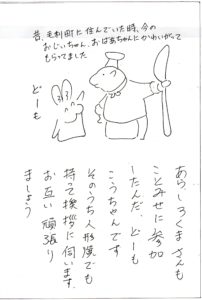 昔、毛利町に住んでいた時、今の
おじいちゃん、おばあちゃんにかわいがって
もらってました
どーも
あらしろくまさんも
ことみせに参加
したんだ、どーも
こうちゃんです
そのうち人形展でも
持って挨拶に伺います。
お互い頑張り
ましょう